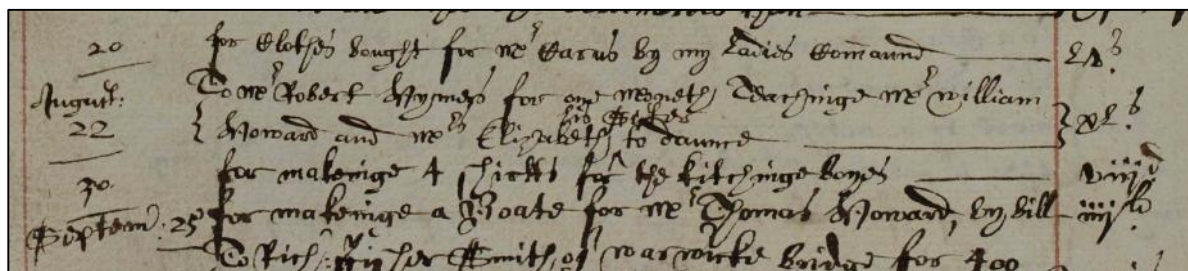 20 for Clothes bought for mr Carus by my Ladies Comaund Lvs
August: To mr Robert Hymers for one moneth Teachinge mr william
22 Howard and mrs Elizabeth his Sister to daunce xls
30 for makeinge 4 shirtts for the kitchinge boyes viijd
Septem: 25 for makeinge a Coate for mr Thomas Howard, by bill
To Rich: Fisher Smith, of warwicke bridge for 400